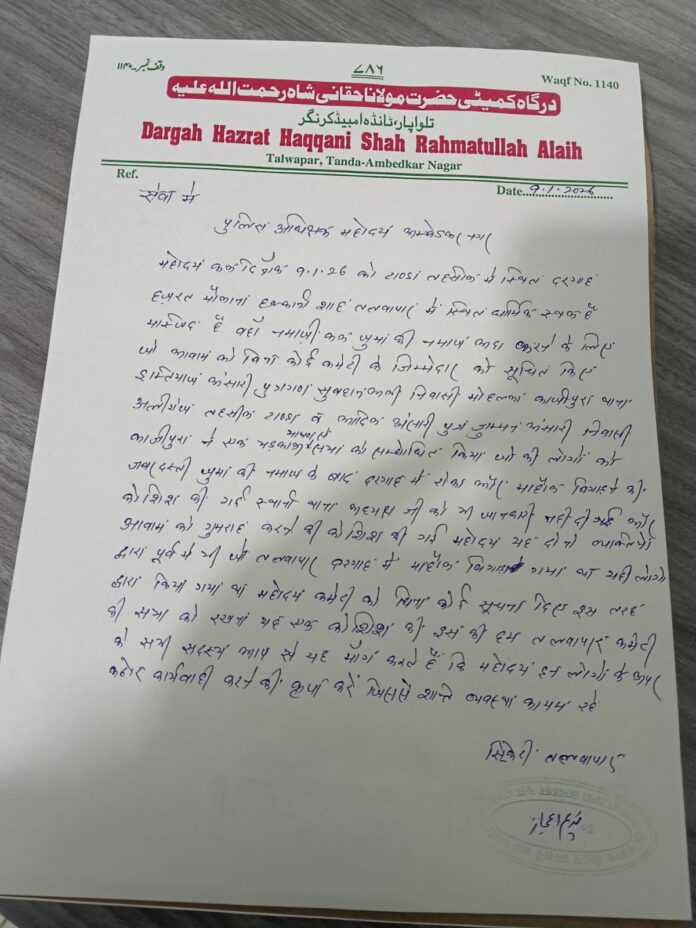 وقف نمبر-۱۱۴۰
۷۸۶
Waqf No. 1140
درگاہ کمیٹی حضرت مولانا حقانی شاہ رحمت اللہ علیہ
تلواپار، ٹانڈہ امبیڈکرنگر
Dargah Hazrat Haqqani Shah Rahmatullah Alaih
Talwapar, Tanda-Ambedkar Nagar
Ref.
Date 9.1.2026
सेवा मे
पुलिस अधिक्षक महोदय अम्बेडकर नगर
महोदय कल दिनाँक 9.1.26 को टाण्डा तहसील मे स्थित दरगाह
हज़रत मौलाना हक्कानी शाह तलवापार मे स्थित धार्मिक स्थल है
मस्जिद है वहाँ नमाज़ी जुमां की नमाज़ अदा करने के लिए
को बिना कोई कमेटी के जिम्मेदार को सूचित किए
इम्तियाज़ अंसारी निवासी काजीपुरा थाना
अलीगंज तहसील टाण्डा व अंसारी पुत्र जुम्मन अंसारी निवासी
काजीपुरा ने एक को सम्बोधित किया जो की लोगो को
जबरदस्ती जुमां की नमाज़ के बाद दरगाह मे रोका और माहौल बिगाड़ने की
कोशिश की गई थाना जी को भी जानकारी नही दी गई और
आवाम को गुमराह करने की कोशिश की गई महोदय यह दोनो व्यक्तियों
द्वारा पूर्व मे भी जो तलवापार दरगाह मे माहौल बिगाड़ा गया था यही लोगो
द्वारा किया गया था महोदय कमेटी को बिना कोई सूचना दिए इस तरह
की सभा को रखना यह एक कोशिश की हम तलवापार कमेटी
के सभी सदस्य आप से यह माँग करते है कि महोदय इन लोगो के ऊपर
कठोर कार्यवाही करने की कृपा करें जिससे शान्ति व्यवस्था कायम रहे
तलवापार